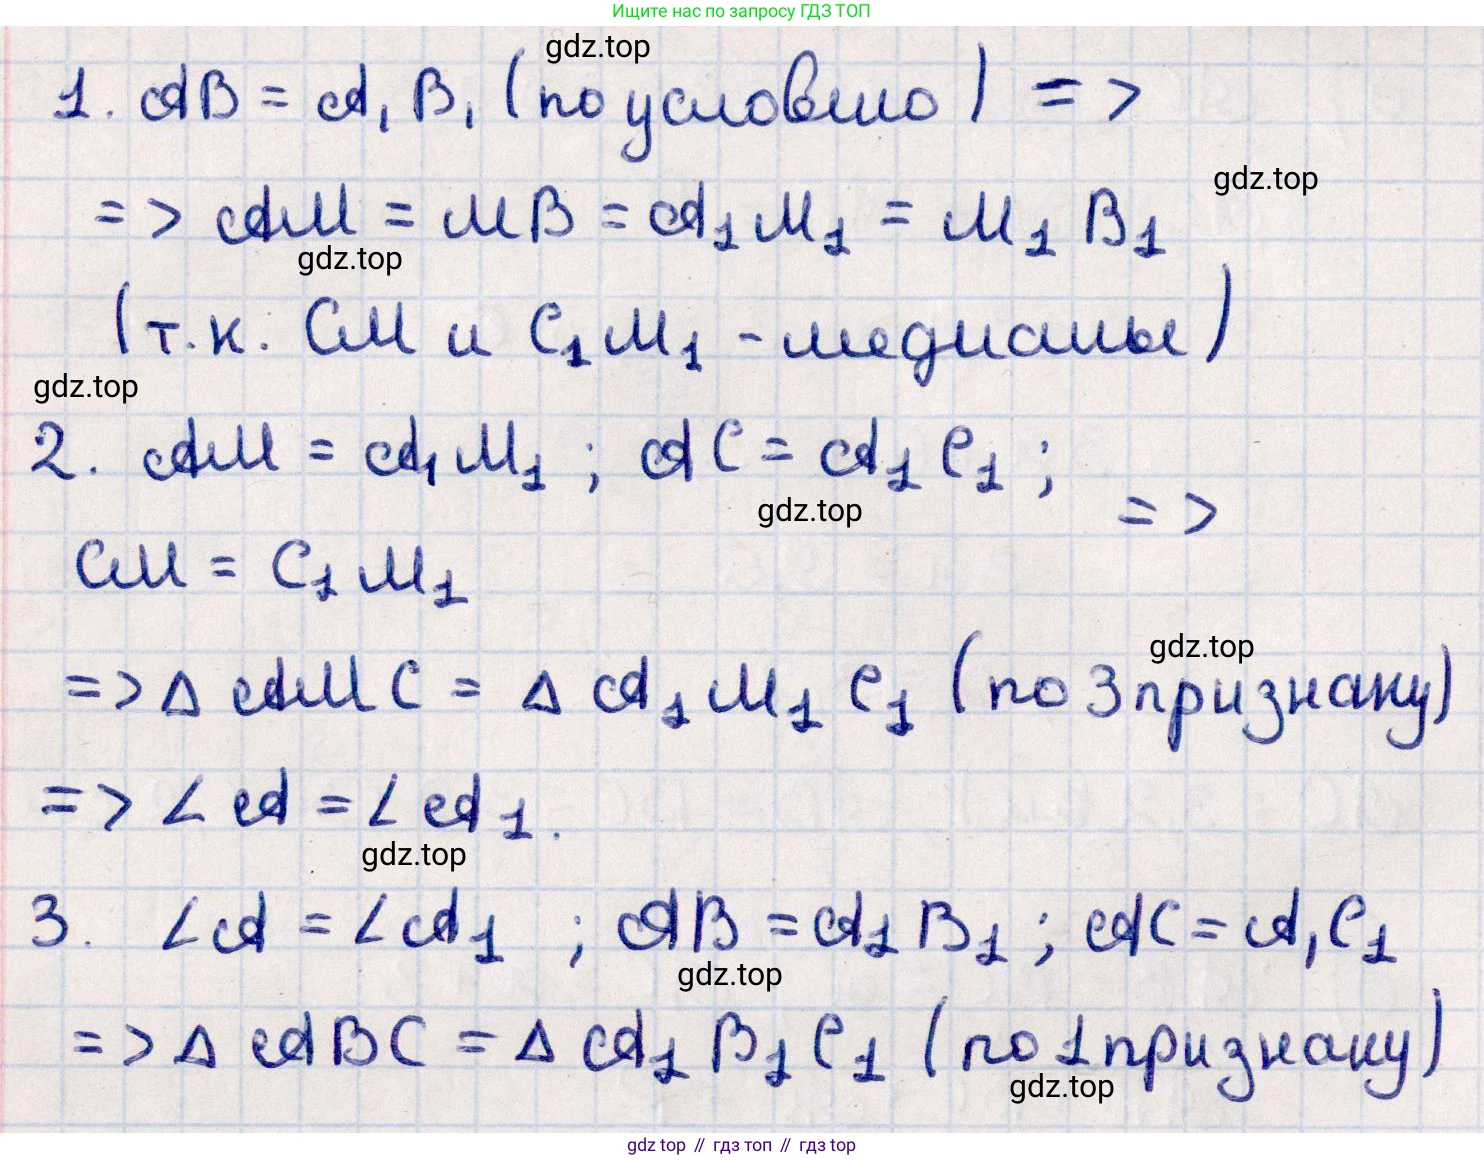 Ищите нас по запросу ГДЗ ТОП
gdz.top
1. AB = A₁B₁ (по условию) =>
gdz.top
=> AM = MB = A₁M₁ = M₁B₁
gdz.top
(т.к. CM и C₁M₁ - медианы)
gdz.top
2. AM = A₁M₁ ; AC = A₁C₁ ;
gdz.top
=>
CM = C₁M₁
gdz.top
=> Δ AMC = Δ A₁M₁C₁ (по 3 признаку)
=> ∠A = ∠A₁.
gdz.top
3. ∠A = ∠A₁ ; AB = A₁B₁ ; AC = A₁C₁
gdz.top
=> Δ ABC = Δ A₁B₁C₁ (по 1 признаку)
gdz.top
gdz top // гдз топ // gdz.top